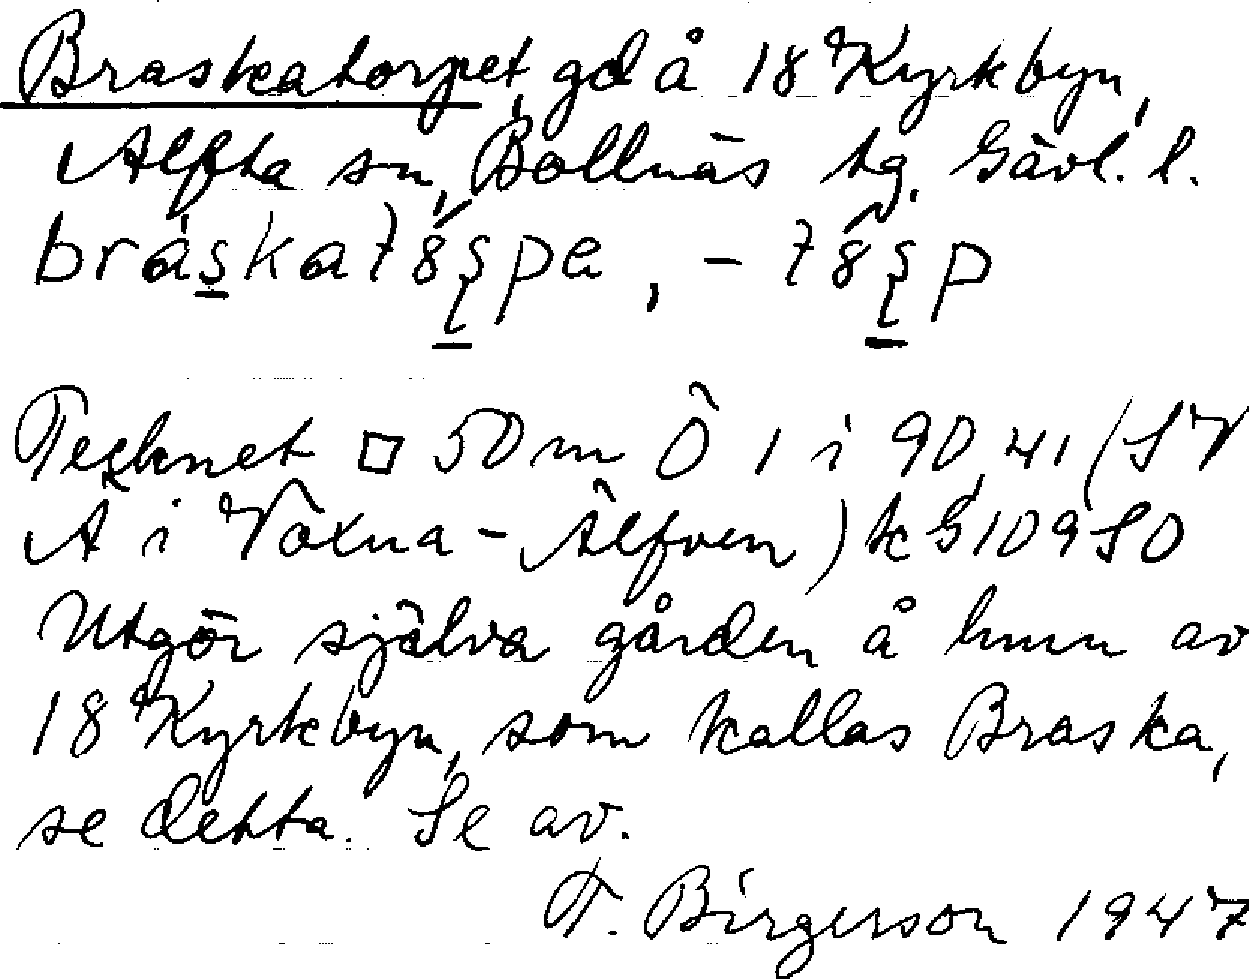 Braskatorpet, gd å 18 Kyrkbyn,
Alfta sn, Bollnäs tg. Gävl. l.
Tecknet □ 50 m Ö 1 i 90,41 (SV
Ä i Voxna-Älfven) k G 109 SO
Utgör själva gården å hmn av
18 Kyrkbyn, som kallas Braska,
se detta. Se av.
T. Birgerson 1947